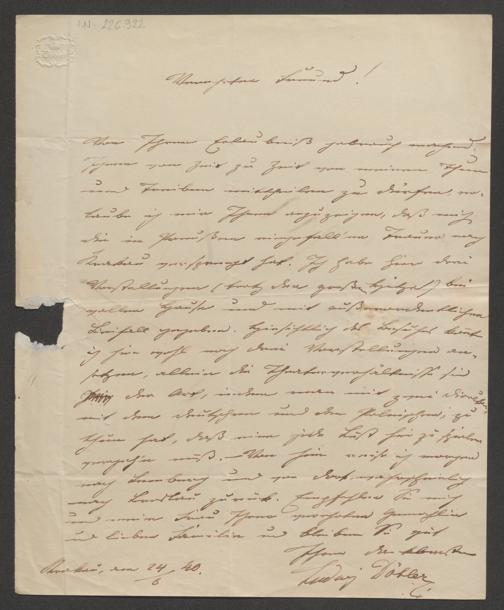 I.N. 226.922
Verehrter Freund!
Von Ihrer Erlaubniß Gebrauch machend,
Ihnen von Zeit zu Zeit von meinem Thun
und Treiben mittheilen zu dürfen, er-
laube ich mir Ihnen anzuzeigen, daß mich
die in Preußen eingefall'ne Trauer nach
Krakau versprengt hat. Ich habe hier drei
Vorstellungen (trotz der großen Hitze) bei
vollem Hause und mit außerordentlichem
Beifall gegeben. Hinsichtlich des Besuchs könnte
ich hier wohl noch drei Vorstellungen an-
setzen, allein die Theaterverhältniße sind
der Art, indem man mit zwei
mit dem deutschen und dem Polnischen, zu
thun hat, daß einem jede Lust hier zu spielen
vergehen muß. Von hier reise ich morgen
nach Lemberg und von dort wahrscheinlich
nach Breslau zurück. Empfehlen Sie mich
und meine Frau Ihrer verehrten Gemahlin
und lieben Familie und bleiben Sie gut
Ihrem
Krakau, am 24/6 40. Ludwig Döbler